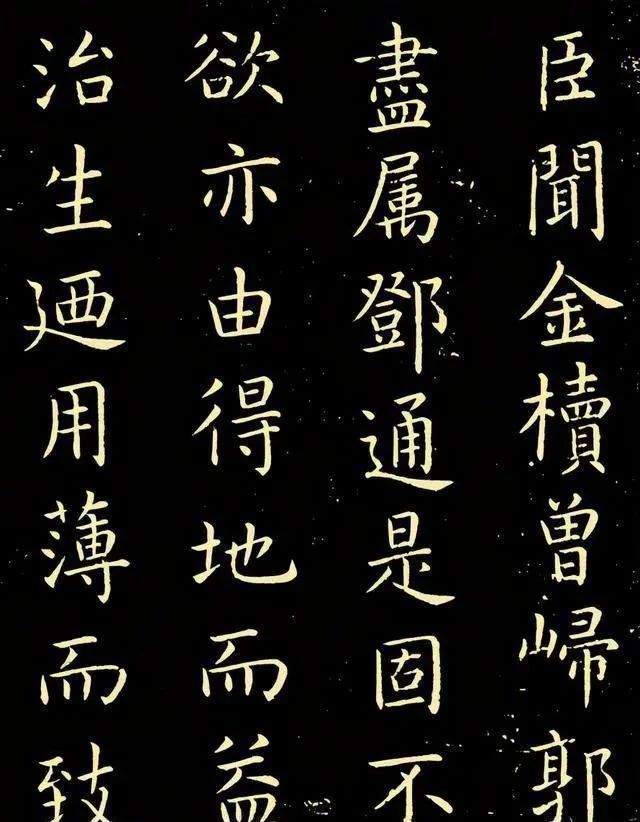 臣聞金櫝曾㱕郭
盡属鄧通是固不
欲亦由得地而益
治生廼用薄而致